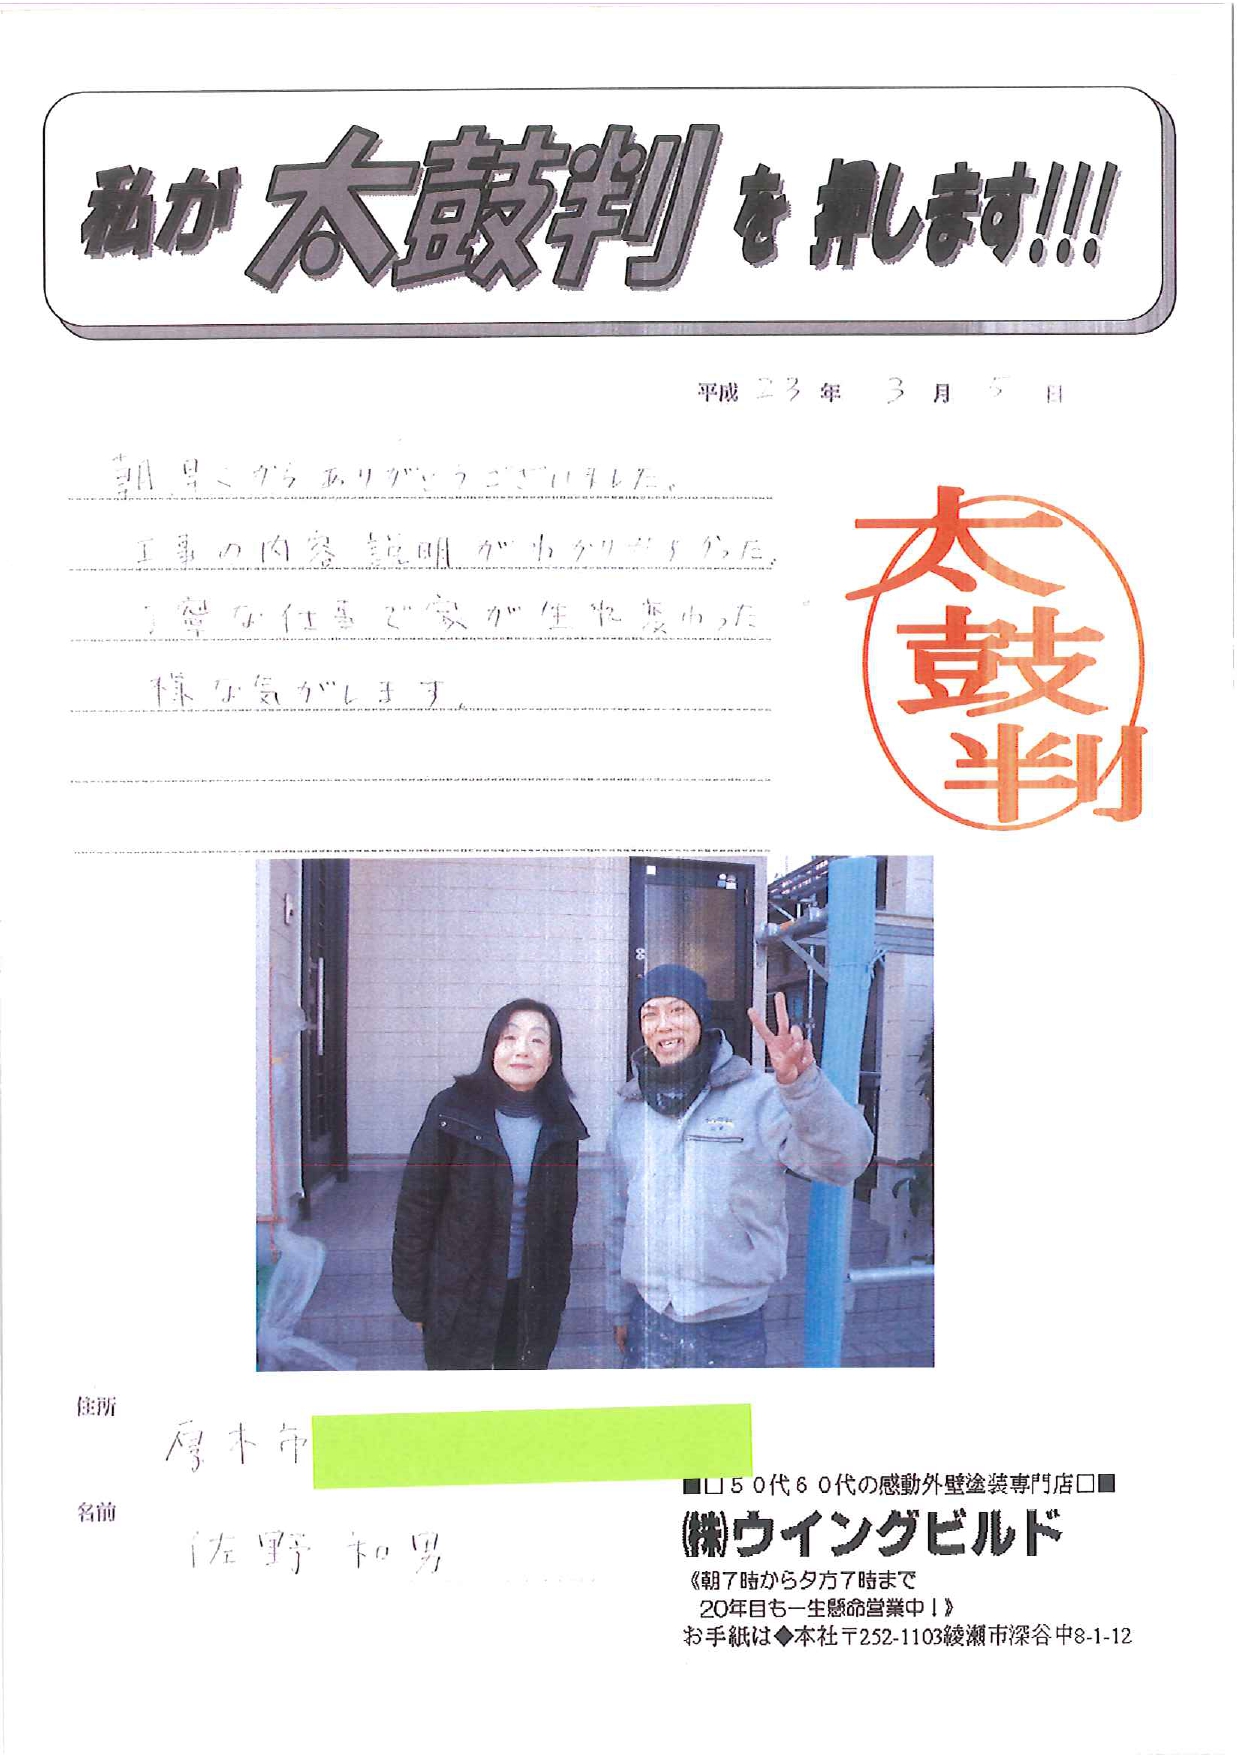 私が太鼓判を押します!!!
平成23年3月5日
朝早くからありがとうございました。
工事の内容説明がわかりやすかった。
丁寧な仕事で家が生れ変わった
様な気がします。
太
鼓
判
住所
厚木市
名前
佐野和男
■□50代60代の感動外壁塗装専門店□■
㈱ウイングビルド
《朝7時から夕方7時まで
20年目も一生懸命営業中!》
お手紙は◆本社〒252-1103綾瀬市深谷中8-1-12